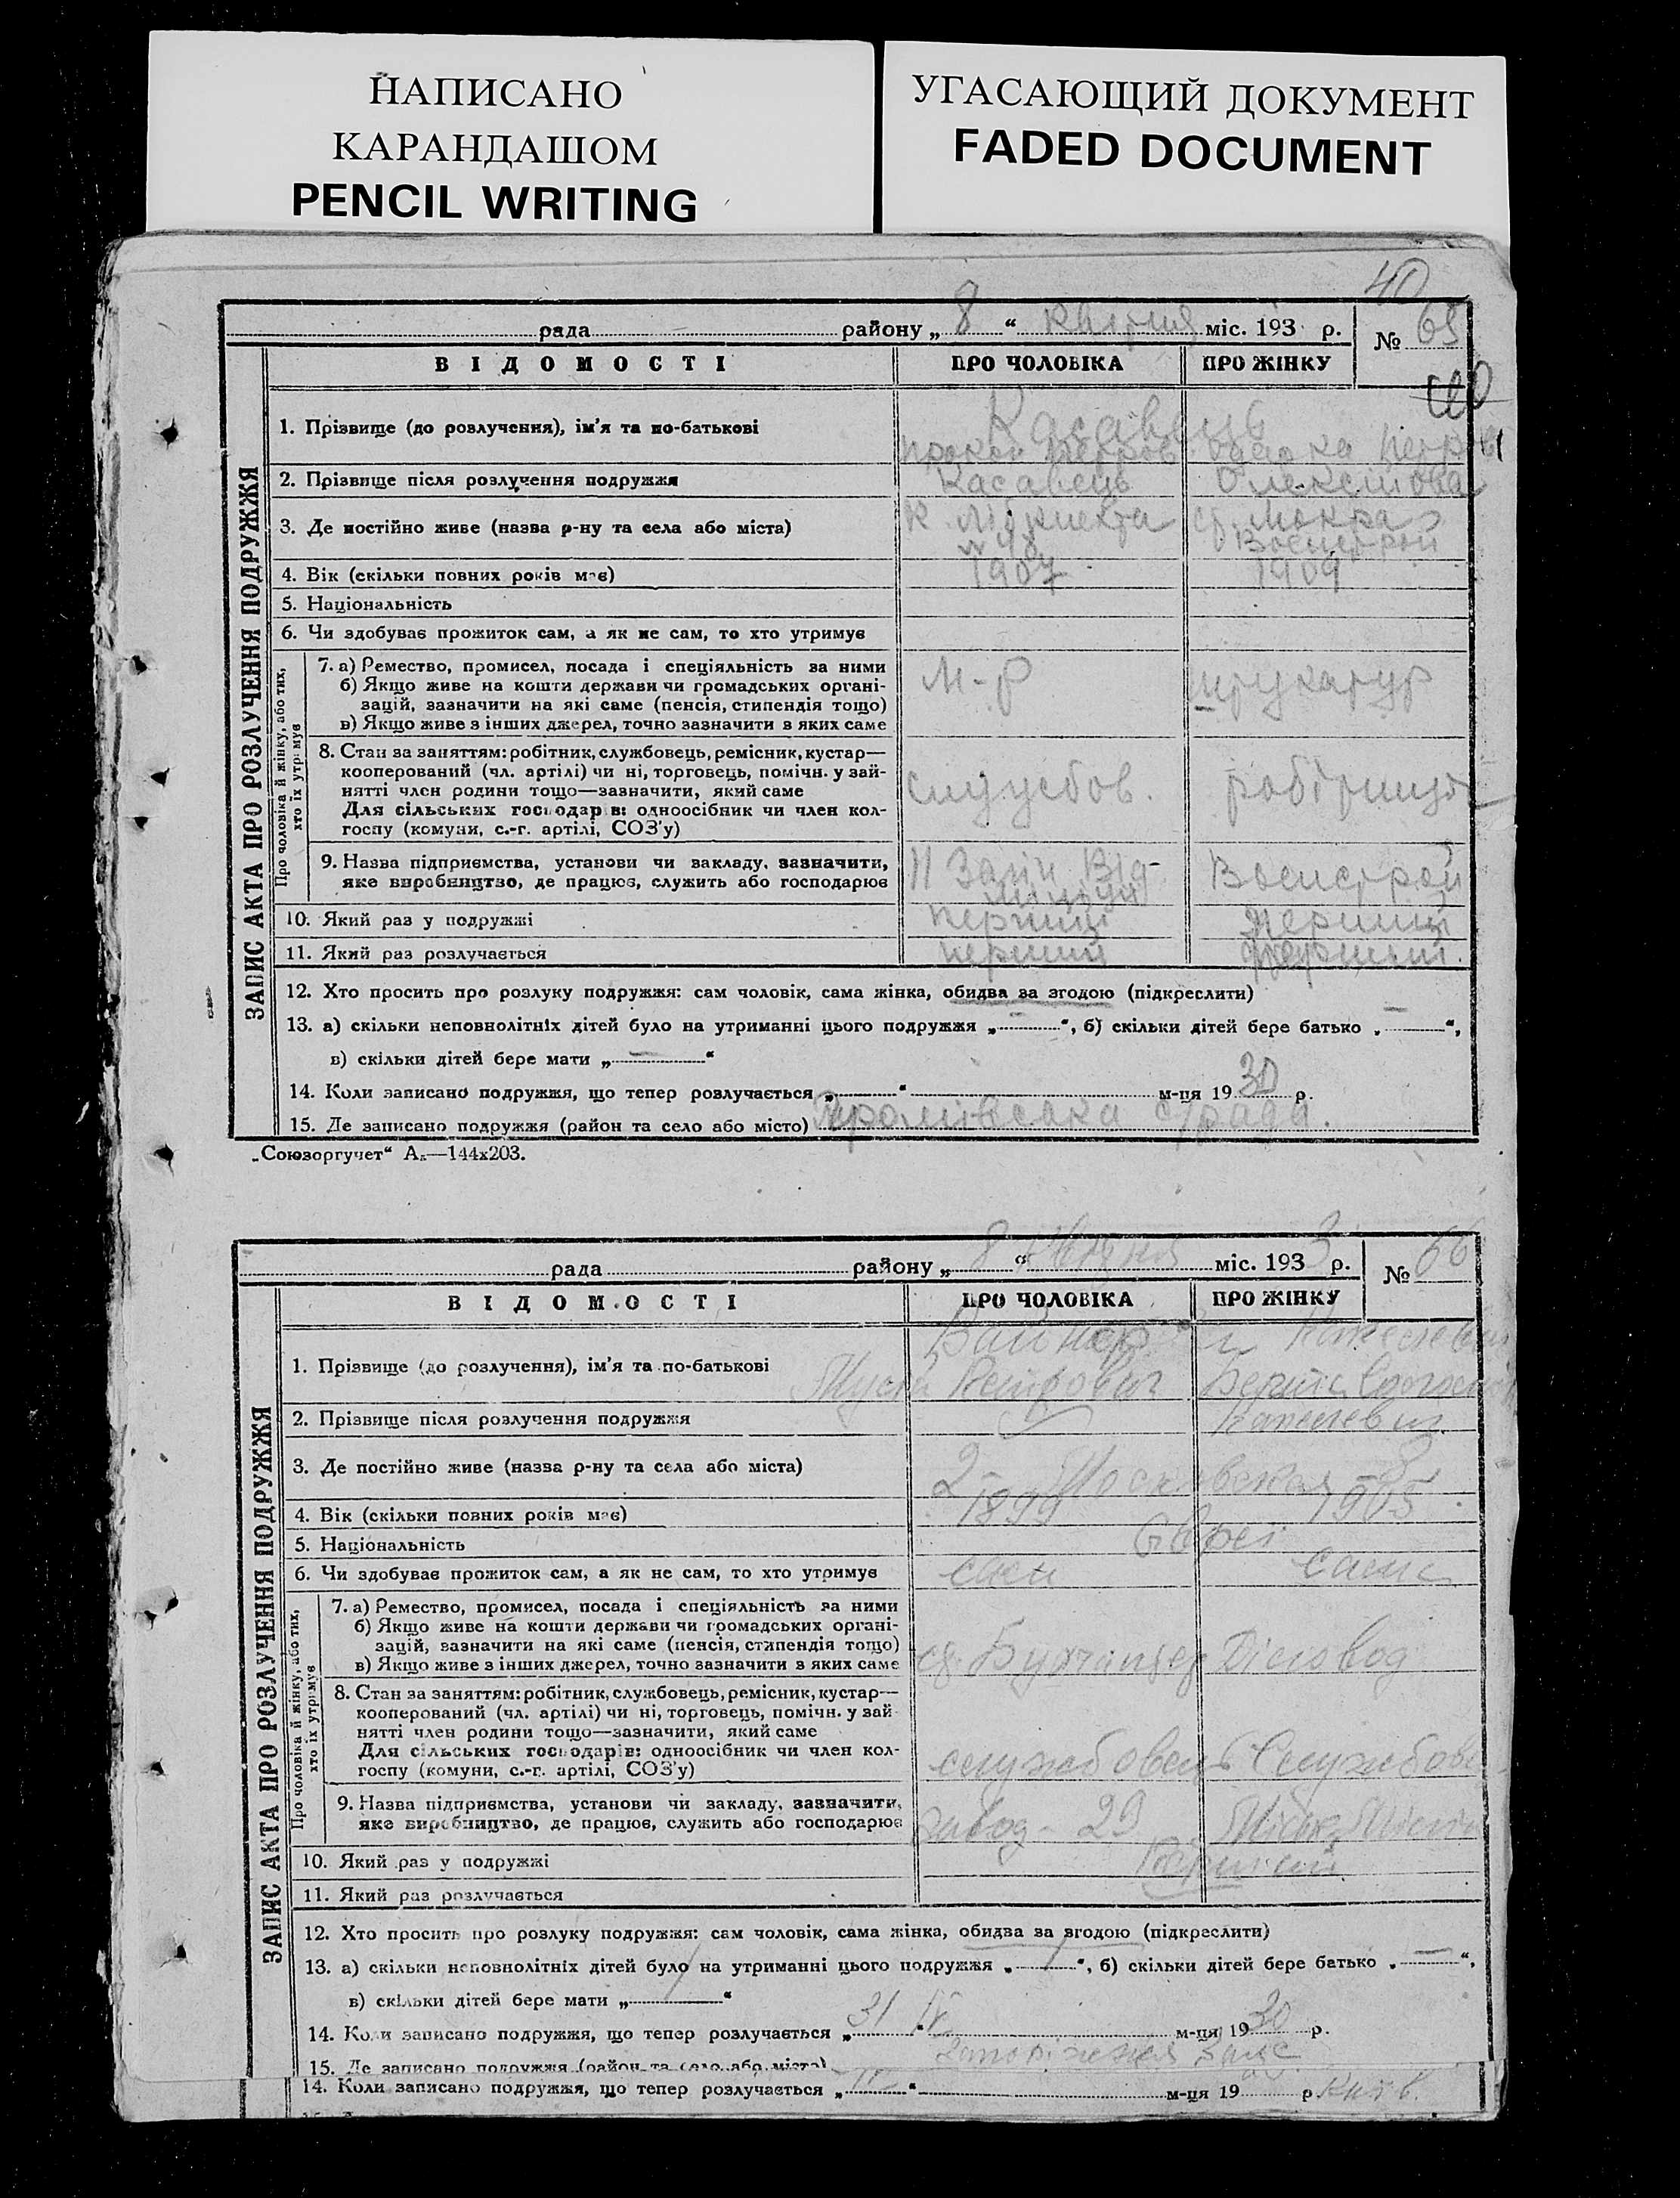 НАПИСАНО
КАРАНДАШОМ
PENCIL WRITING
УГАСАЮЩИЙ ДОКУМЕНТ
FADED DOCUMENT
40
рада району „ 8 “ квітня міс. 193 р.
№ 65
ЗАПИС АКТА ПРО РОЗЛУЧЕННЯ ПОДРУЖЖЯ
ВІДОМОСТІ ПРО ЧОЛОВІКА ПРО ЖІНКУ
1. Прізвище (до розлучення), ім'я та по-батькові Касавець
Петров. Одарка Петров
2. Прізвище після розлучення подружжя Касавець
3. Де постійно живе (назва р-ну та села або міста) К. Лібкнехта ст. Мокра
№ 48 Воєнстрой
4. Вік (скільки повних років має) 1907 1909
5. Національність
6. Чи здобуває прожиток сам, а як не сам, то хто утримує
Про чоловіка й жінку, або тих,
хто їх утримує
7. а) Ремество, промисел, посада і спеціяльність за ними
б) Якщо живе на кошти держави чи громадських органі-
зацій, зазначити на які саме (пенсія, стипендія тощо)
в) Якщо живе з інших джерел, точно зазначити в яких саме
М-р штукатур
8. Стан за заняттям: робітник, службовець, ремісник, кустар—
кооперований (чл. артілі) чи ні, торговець, помічн. у зай-
нятті член родини тощо—зазначити, який саме
Для сільських господарів: одноосібник чи член кол-
госпу (комуни, с.-г. артілі, СОЗ'у)
службов. робітниця
9. Назва підприємства, установи чи закладу, зазначити,
яке виробництво, де працює, служить або господарює
Воєнстрой
10. Який раз у подружжі перший перший
11. Який раз розлучається перший перший
12. Хто просить про розлуку подружжя: сам чоловік, сама жінка, обидва за згодою (підкреслити)
13. а) скільки неповнолітніх дітей було на утриманні цього подружжя „ — “, б) скільки дітей бере батько „ — “,
в) скільки дітей бере мати „ — “
14. Коли записано подружжя, що тепер розлучається „ “ м-ця 1930 р.
15. Де записано подружжя (район та село або місто) с/рада.
„Союзоргучет“ А₅—144х203.
рада району „ 8 “ квітня міс. 193 3 р.
№ 66
ЗАПИС АКТА ПРО РОЗЛУЧЕННЯ ПОДРУЖЖЯ
ВІДОМОСТІ ПРО ЧОЛОВІКА ПРО ЖІНКУ
1. Прізвище (до розлучення), ім'я та по-батькові
Петрович Берта
2. Прізвище після розлучення подружжя
3. Де постійно живе (назва р-ну та села або міста) Московская
4. Вік (скільки повних років має) 1899 1905
5. Національність Євреї
6. Чи здобуває прожиток сам, а як не сам, то хто утримує сам сама
Про чоловіка й жінку, або тих,
хто їх утримує
7. а) Ремество, промисел, посада і спеціяльність за ними
б) Якщо живе на кошти держави чи громадських органі-
зацій, зазначити на які саме (пенсія, стипендія тощо)
в) Якщо живе з інших джерел, точно зазначити в яких саме
Бухгалтер Діловод
8. Стан за заняттям: робітник, службовець, ремісник, кустар—
кооперований (чл. артілі) чи ні, торговець, помічн. у зай-
нятті член родини тощо—зазначити, який саме
Для сільських господарів: одноосібник чи член кол-
госпу (комуни, с.-г. артілі, СОЗ'у)
службовець Службов
9. Назва підприємства, установи чи закладу, зазначити,
яке виробництво, де працює, служить або господарює
Завод - 29
10. Який раз у подружжі Перший
11. Який раз розлучається
12. Хто просить про розлуку подружжя: сам чоловік, сама жінка, обидва за згодою (підкреслити)
13. а) скільки неповнолітніх дітей було на утриманні цього подружжя „ “, б) скільки дітей бере батько „ — “,
в) скільки дітей бере мати „ “
14. Коли записано подружжя, що тепер розлучається „ 31 “ IV м-ця 1930 р.
15. Де записано подружжя (район та село або місто) Запоріжжя Загс
14. Коли записано подружжя, що тепер розлучається „ “ м-ця 19 р.